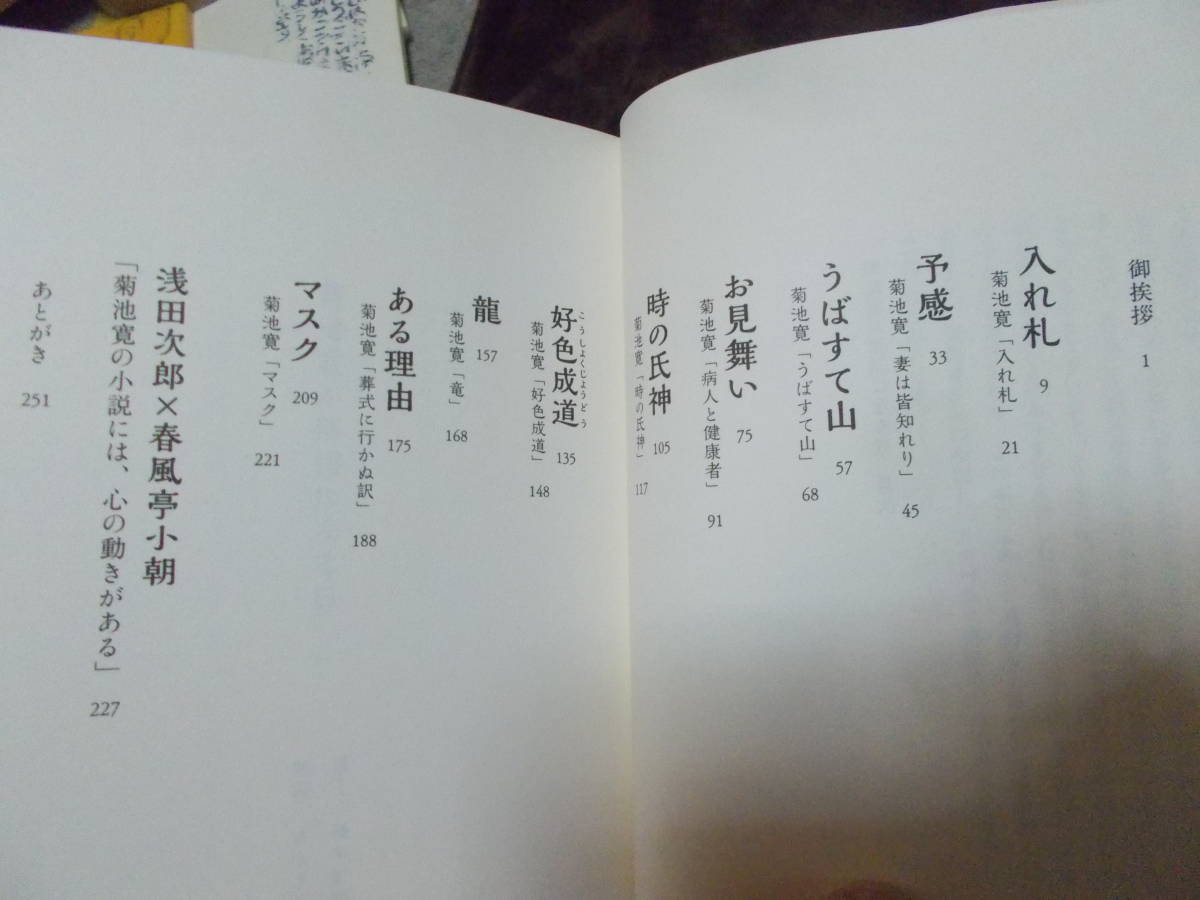 御挨拶 1
入れ札 9
菊池寛「入れ札」 21
予感 33
菊池寛「妻は皆知れり」 45
うばすて山 57
菊池寛「うばすて山」 68
お見舞い 75
菊池寛「病人と健康者」 91
時の氏神 105
菊池寛「時の氏神」 117
こうしょくじょうどう
好色成道 135
菊池寛「好色成道」 148
龍 157
菊池寛「竜」 168
ある理由 175
菊池寛「葬式に行かぬ訳」 188
マスク 209
菊池寛「マスク」 221
浅田次郎×春風亭小朝
「菊池寛の小説には、心の動きがある」 227
あとがき 251